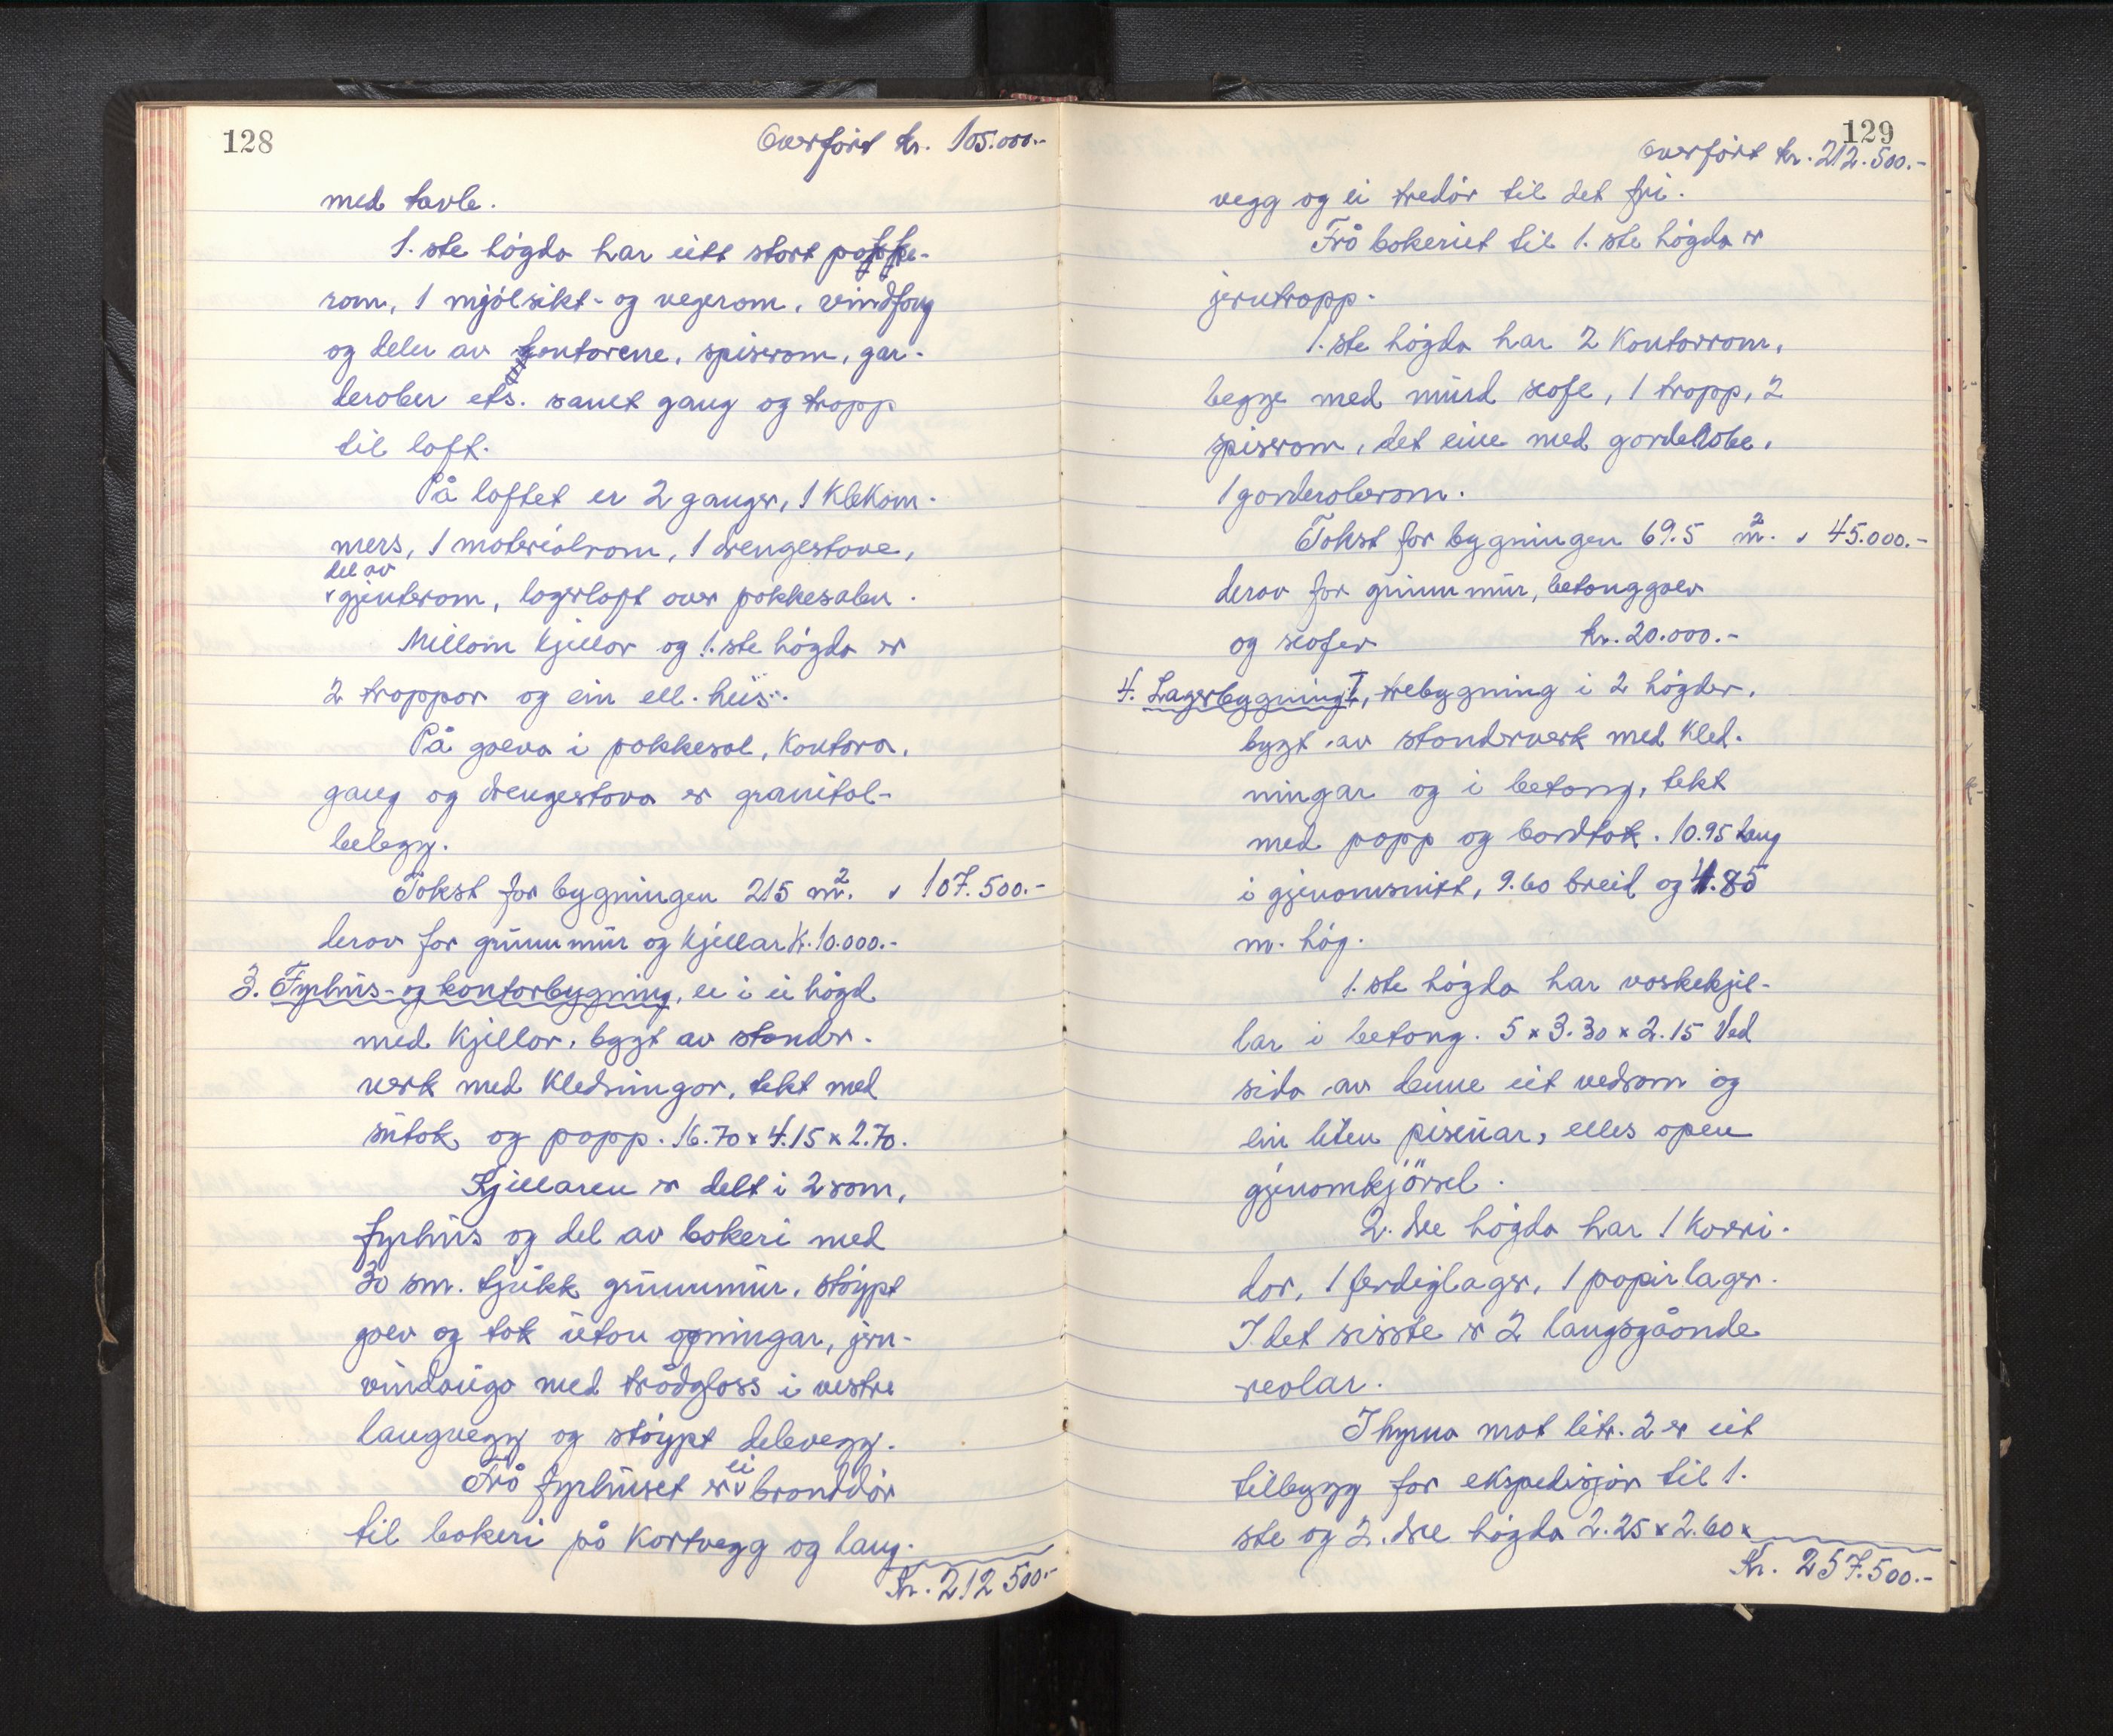 128
Overført kr. 105.000.-
med tavle.
1. ste högda har eitt stort pakke-
rom, 1 mjölsikt- og vegerom, vindfang
og deler av kontorene, spiserom, gar-
derober ets. samt gang og tropp
til loft.
På loftet er 2 ganger, 1 klekam-
mers, 1 materialrom, 1 drengestove,
del av
gjenterom, lagerloft over pakkesalen.
Millom kjellar og 1. ste högda er
2 troppar og ein ell. heis.
På golva i pakkesal, kontora,
gang og drengestova er granitol-
belegg.
Takst for bygningen 215 m². " 107.500.-
derav for grunnmur og kjellar k. 10.000.-
3. Fyrhus- og kontorbygning, er i ei högd
med kjellar, bygt av stender-
verk med kledningar, tekt med
sutak og papp. 16.70 x 4.15 x 2.70.
Kjellaren er delt i 2 rom,
fyrhus og del av bakeri med
30 sm. tjukk grunnmur, støypt
golv og tak utan opningar, jern-
vindauga med trådglass i vestre
langvegg og støypt delevegg.
Frå fyrhuset er ei branddör
til bakeri på kortvegg og lang-
Kr. 212 500.-
129
Overført kr. 212.500.-
vegg og ei tredör til det fri.
Frå bakeriet til 1. ste högda er
jerntropp.
1. ste högda har 2 kontorrom,
begge med murd scofe, 1 tropp, 2
spiserom, det eine med garderobe,
1 garderoberom.
Takst for bygningen 69.5 m². " 45.000.-
derav for grunnmur, betonggolv
og scofer kr. 20.000.-
4. Lagerbygning I, trebygning i 2 högder,
bygt av standerverk med kled-
ningar og i betong, tekt
med papp og bordtak. 10.95 lang
i gjenomsnitt, 9.60 breid og 4.85
m. høg.
1. ste högda har vaskekjel-
lar i betong. 5 x 3.30 x 2.15 Ved
sida av denne eit vedrom og
ein liten pisuar, elles open
gjenomkjörsel.
2. dre högda har 1 korri-
dor, 1 ferdiglager, 1 papirlager.
I det sisste er 2 langsgåande
reolar.
I hyrna mot litr. 2 er eit
tilbygg for ekspedisjon til 1.
ste og 2. dre högda 2.25 x 2.60 x
Kr. 257.500.-